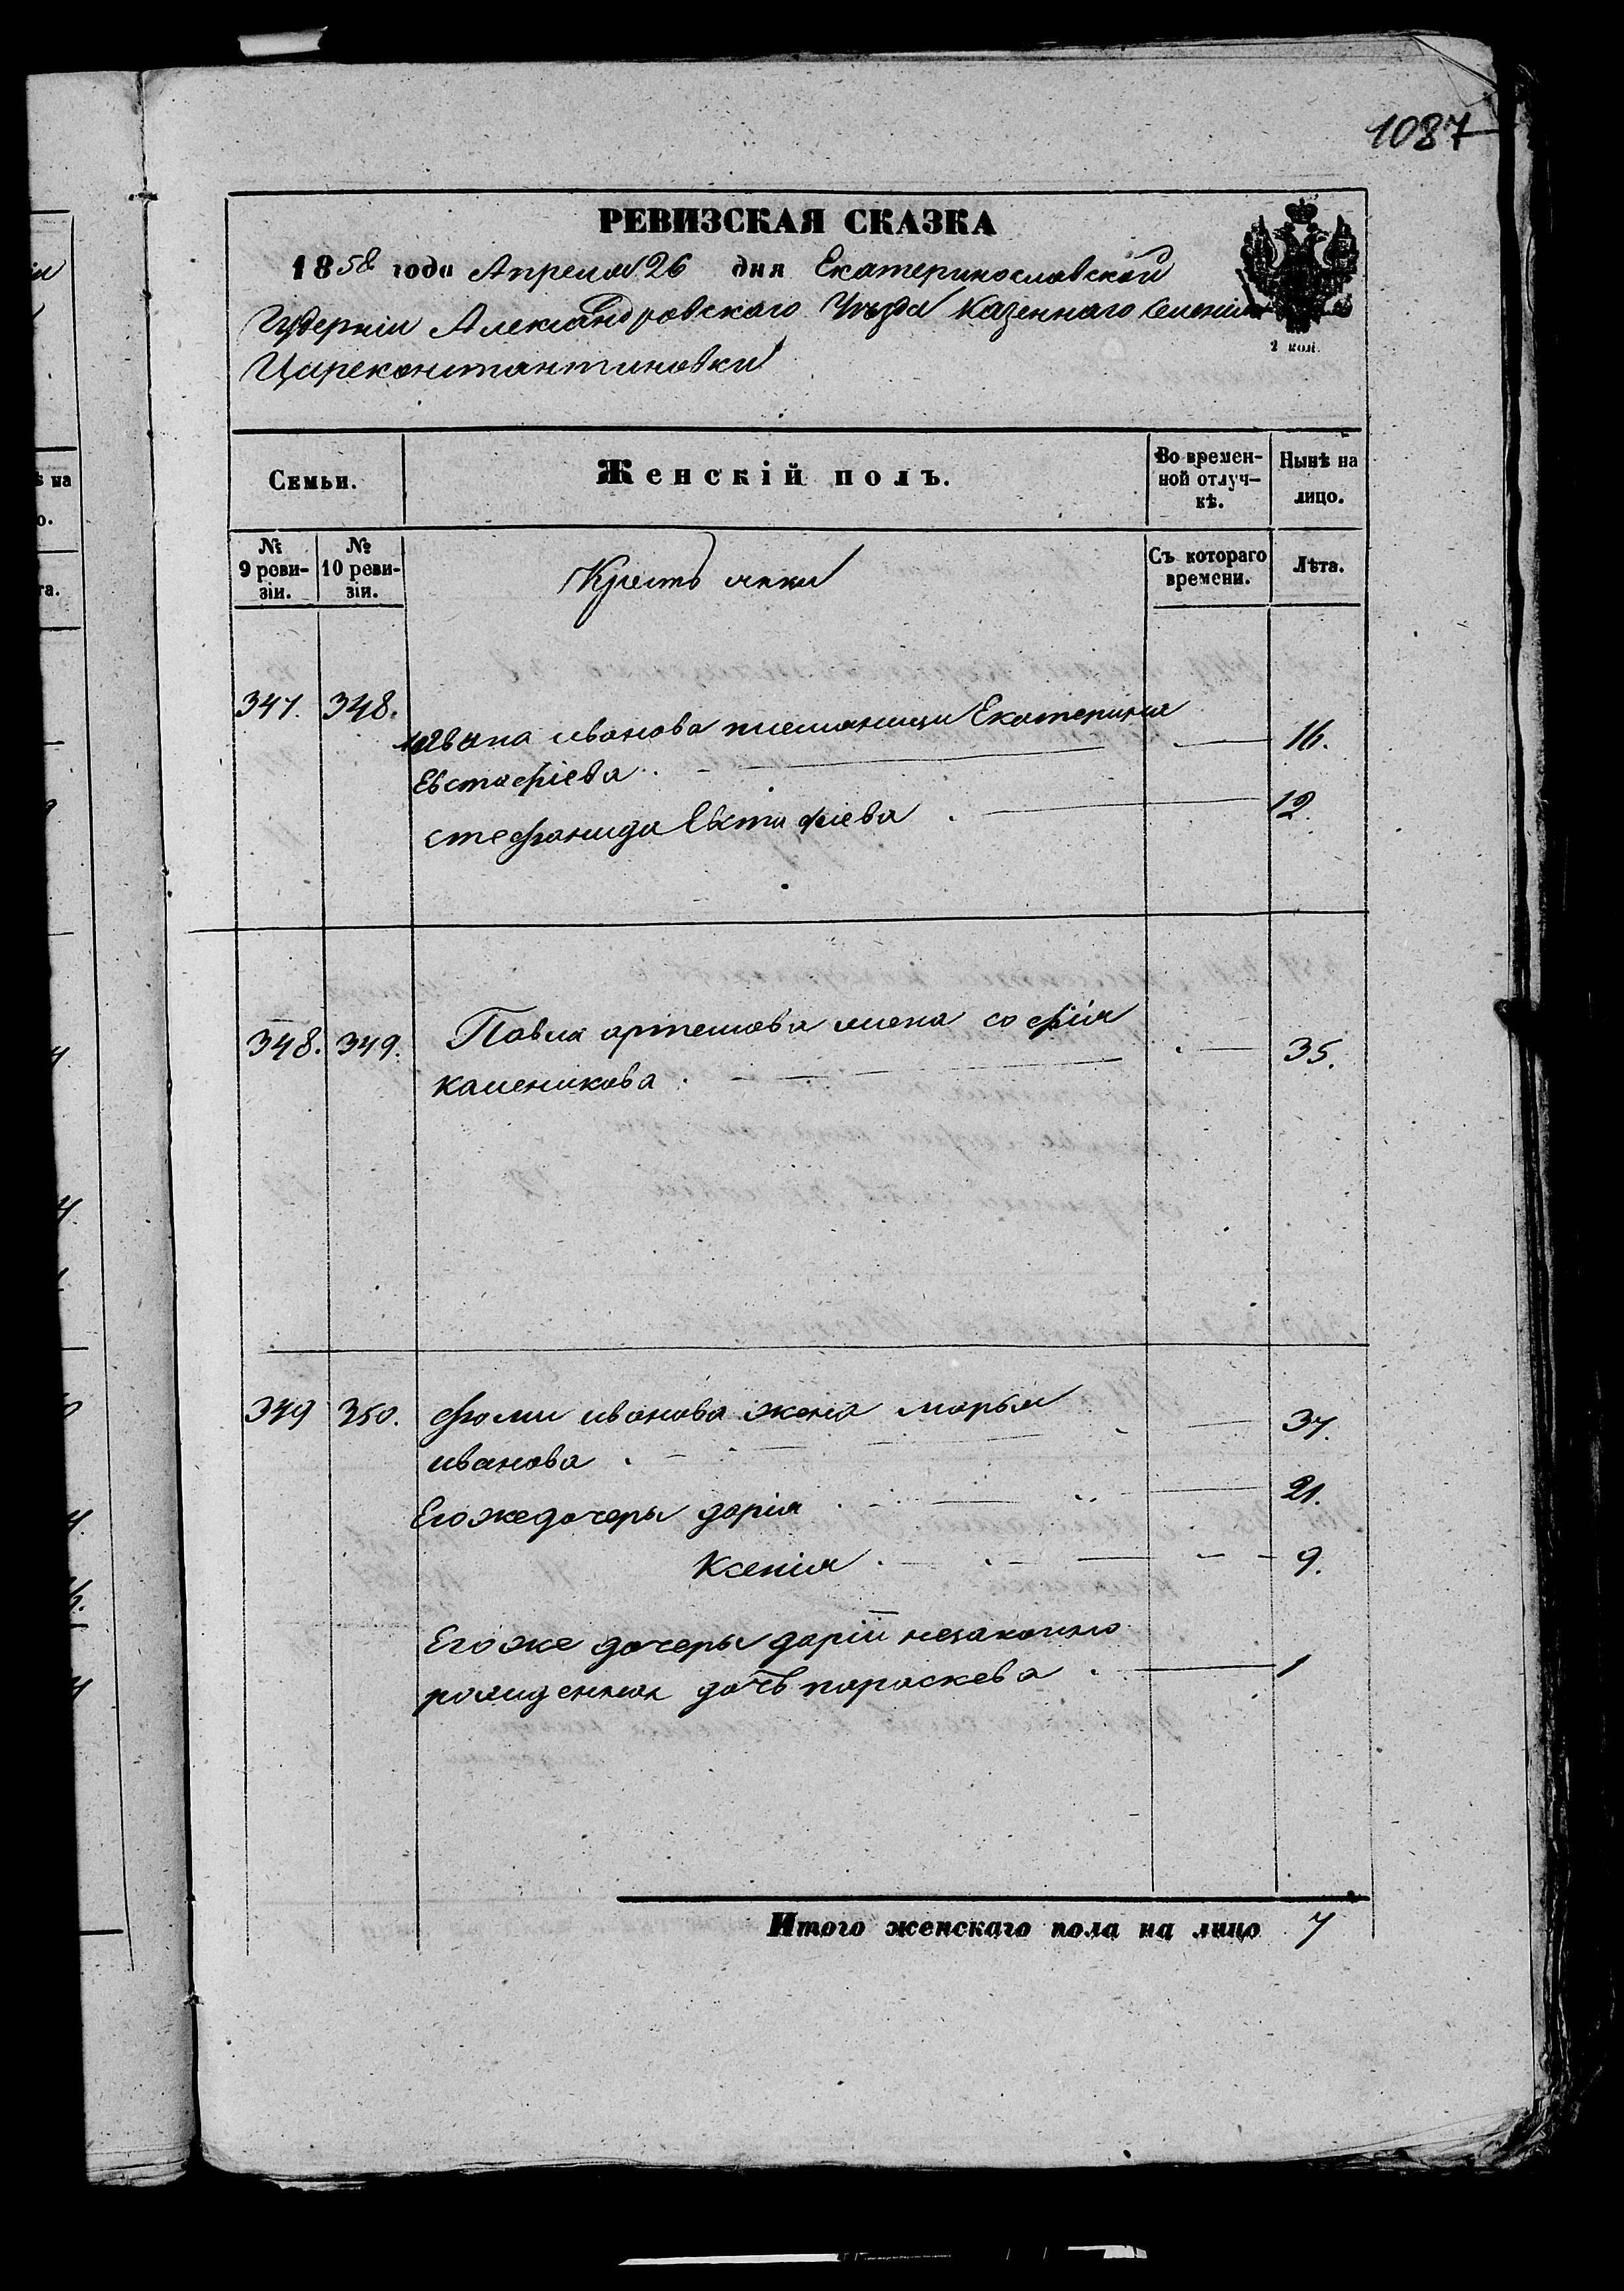 1087
РЕВИЗСКАЯ СКАЗКА
1858 года Апреля 26 дня Екатеринославской
Губерніи Александровского Уезда Казеннаго Селенія
Цареконстантиновки
2 коп.
Семьи.
Женскій полъ.
Во времен-
ной отлуч-
кѣ.
Нынѣ на
лицо.
№
9 реви-
зіи.
№
10 реви-
зіи.
Крестьянки
Съ котораго
времени.
Лѣта.
347. 348. Ивана иванова племяницы Екатерина
Евстафіева 16.
стефанида Евстафіева 12.
348. 349. Павла артемова жена софія
каленикова 35.
349 350. фомы иванова жена марья
иванова 37.
Егоже дочеры дарія 21.
Ксенія 9.
Егоже дочеры даріи незаконно
рожденная дочь параскева 1
Итого женскаго пола на лицо 7